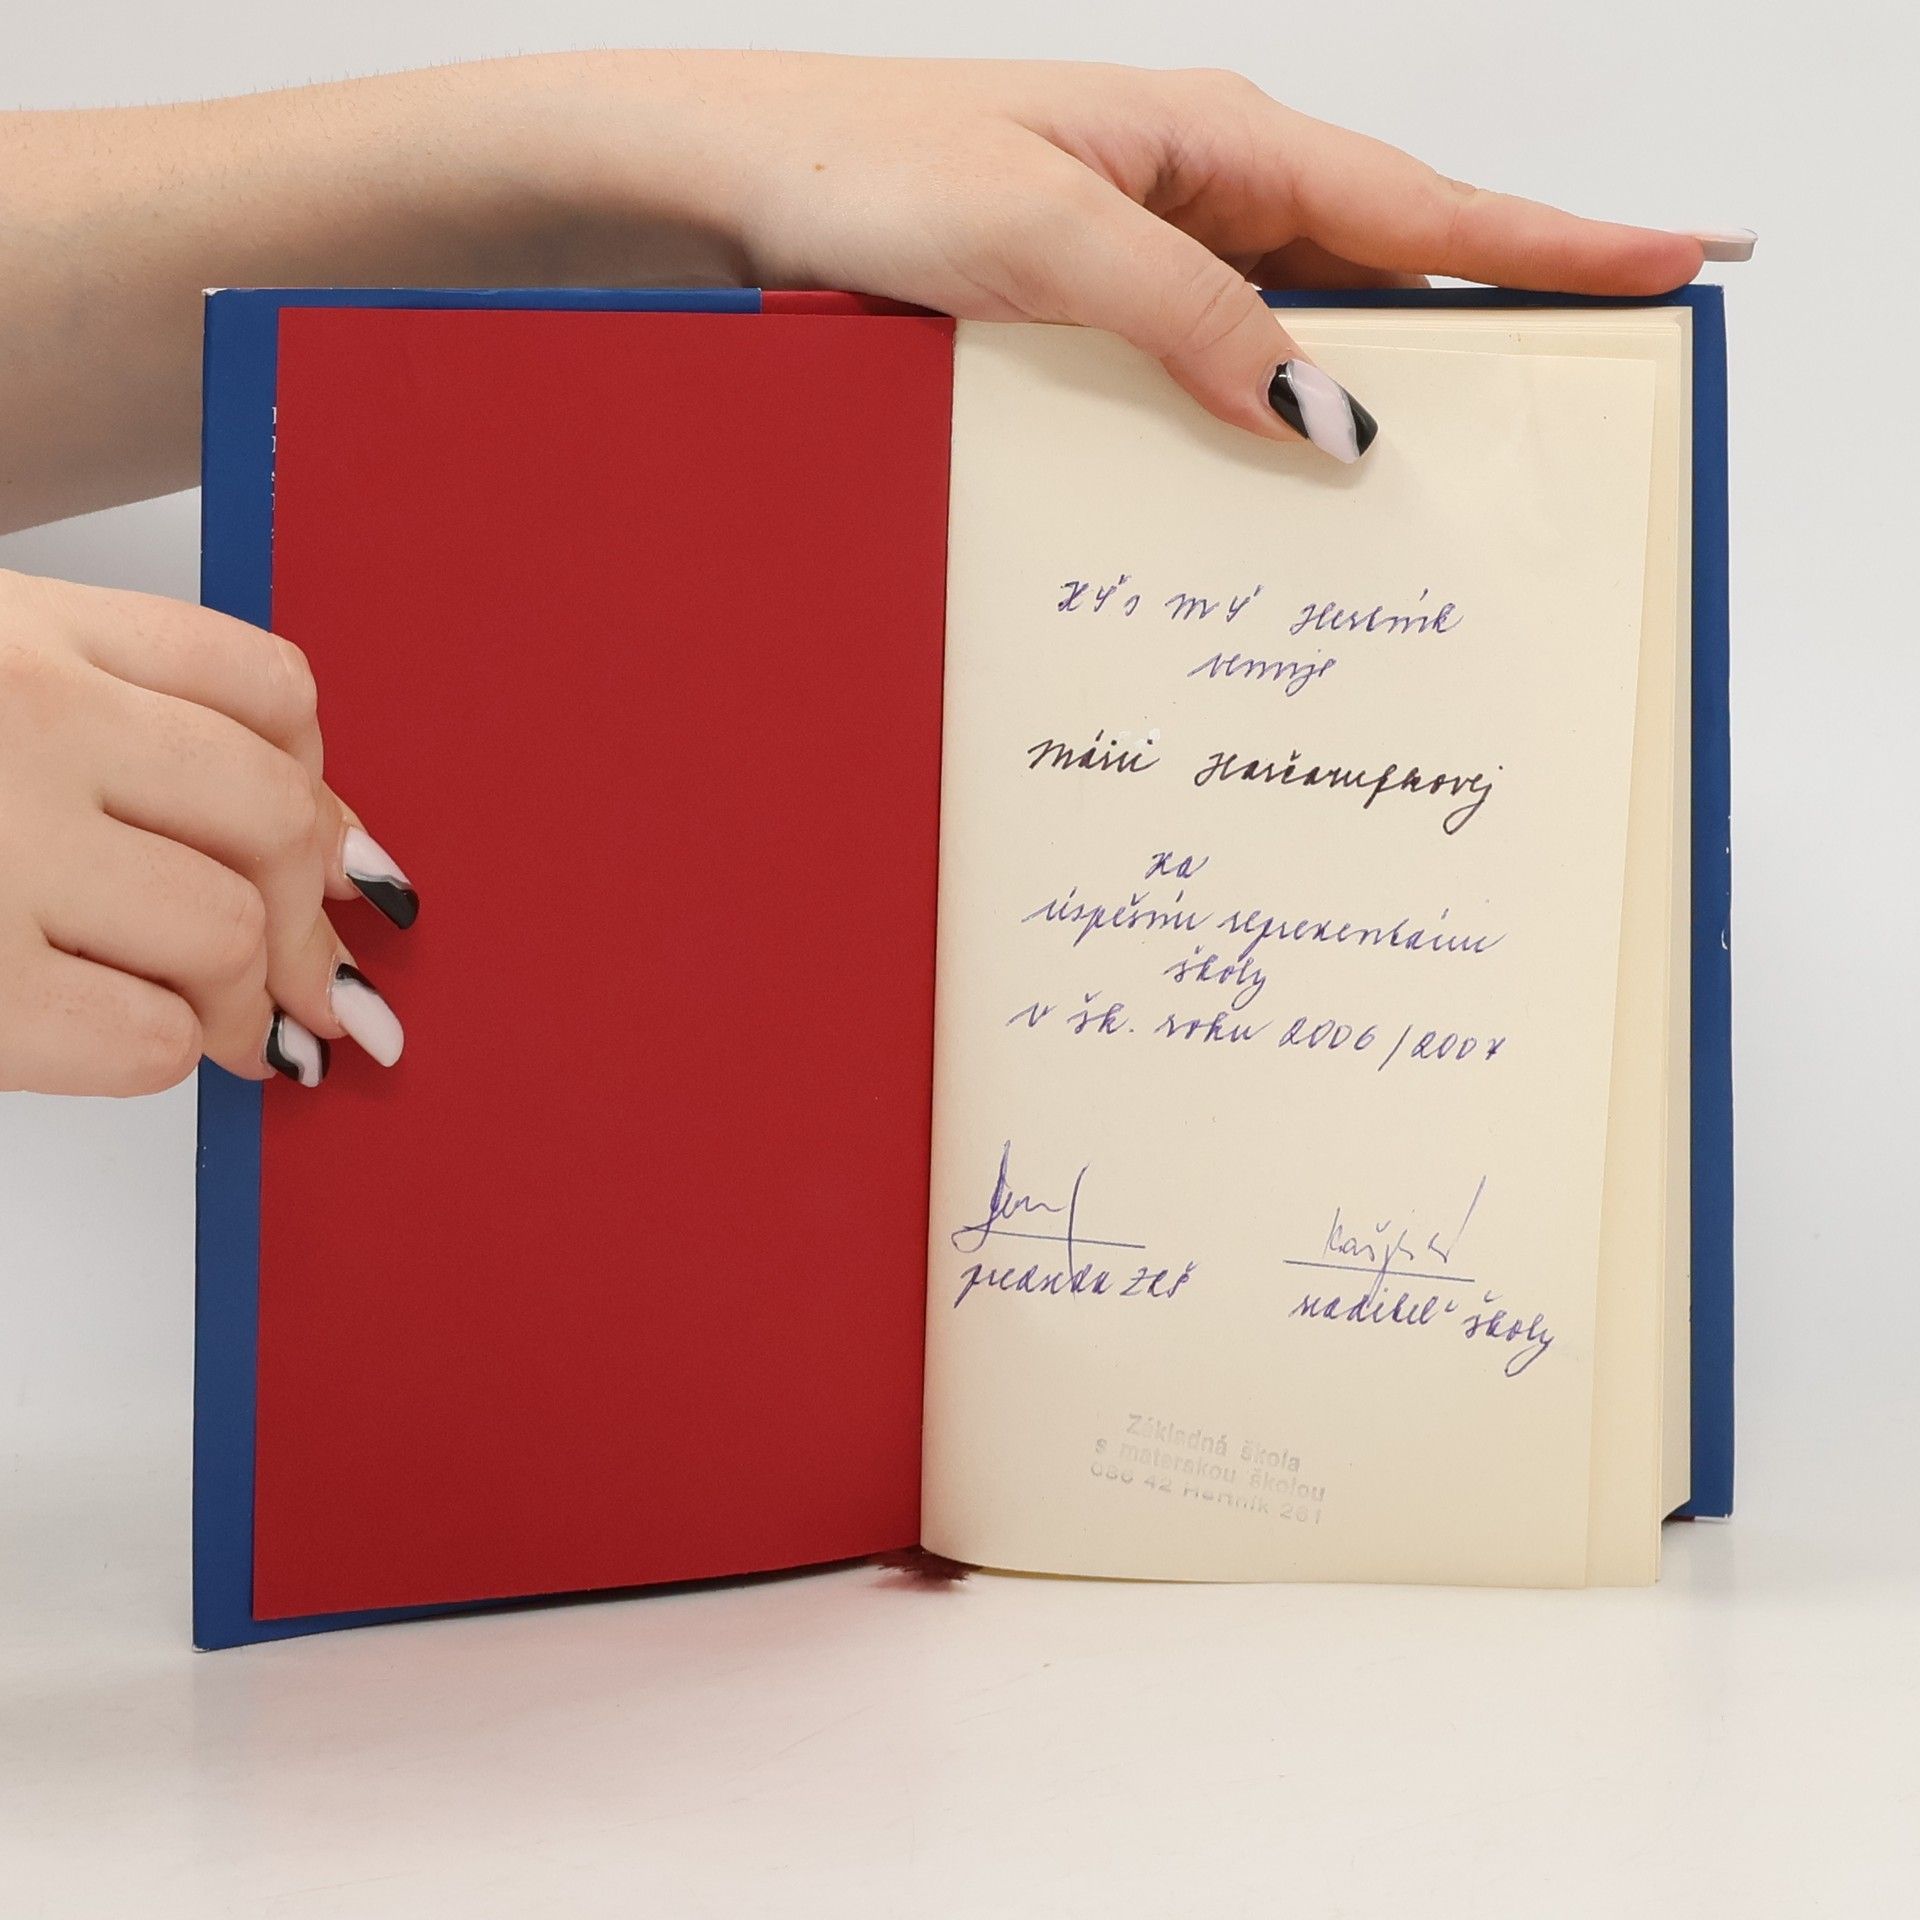 ZŠ s MŠ Hertník
venuje
Márii Harčarufkovej
za
úspešnú reprezentáciu
školy
v šk. roku 2006/2007
predseda ZRŠ
riaditeľ školy
Základná škola
s materskou školou
086 42 Hertník 261